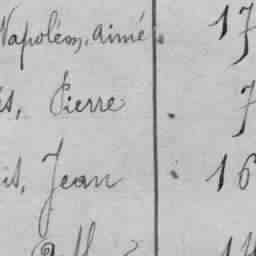 Napoléon, Aimé. 17
Pierre . 7
Jean . 16